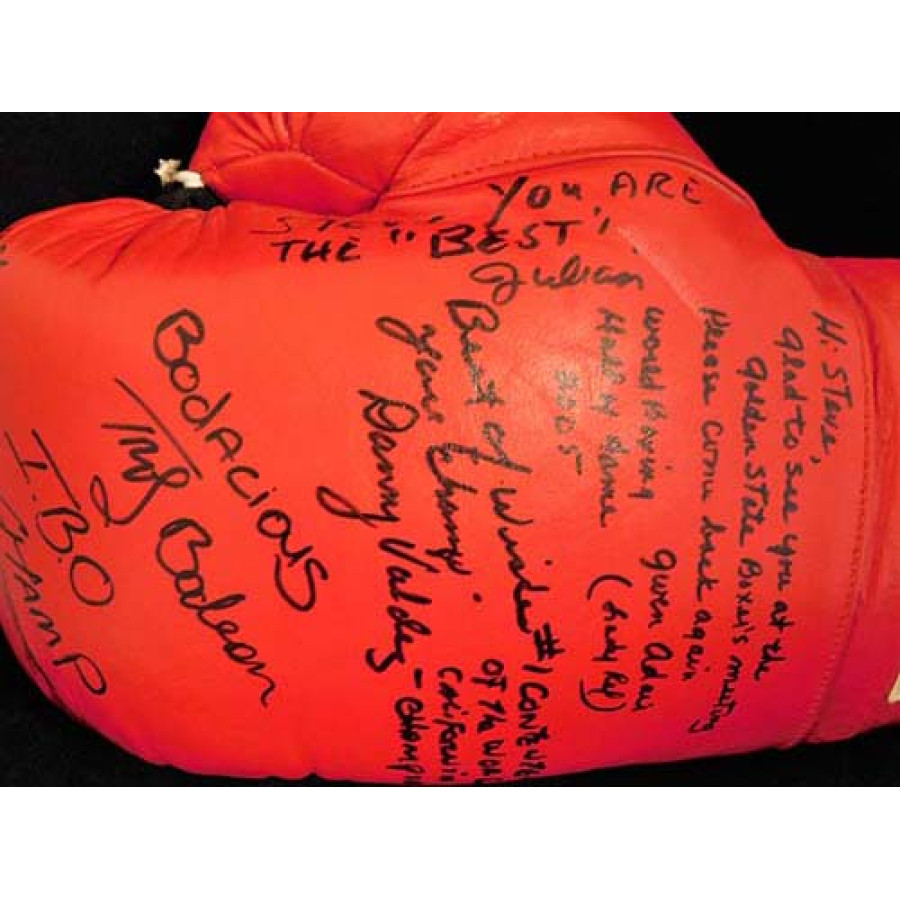 YOU ARE
THE "BEST"
Julian
Hi Steve,
glad to see you at the
golden state Boxer's meeting
Please come back again
Gwen Adair
(Lady Ref)
World Boxing
Hall of Fame
2005
Best of Wishes
your champ.
Danny Valdez
#1 CONTENDE
OF THE WORL
CALIFORNI
- CHAMPI
BODACIOUS
Troy
I.B.O
CHAMP